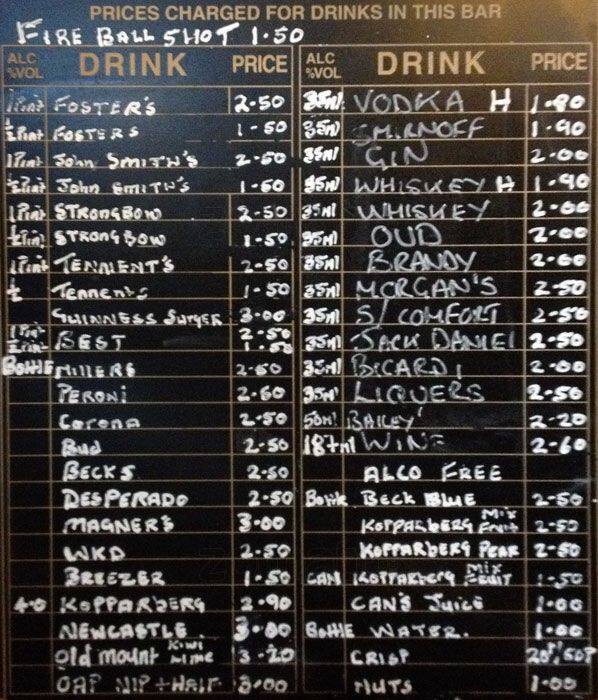 PRICES CHARGED FOR DRINKS IN THIS BAR
FIRE BALL SHOT 1.50
ALC %VOL DRINK PRICE
1 Pint FOSTER'S 2-50
½ Pint FOSTERS 1-50
1 Pint John Smith's 2-50
½ Pint John Smith's 1-50
1 Pint STRONGBOW 2-50
½ Pint STRONGBOW 1-50
1 Pint TENNENT'S 2-50
½ Tennents 1-50
GUINNESS SURGER 3-00
1 Pint 2-50
½ Pint BEST 1-50
Bottle MILLERS 2-50
PERONI 2-60
Corona 2-50
Bud 2-50
BECKS 2-50
DESPERADO 2-50
MAGNER'S 3-00
WKD 2-50
BREEZER 1-50
4-0 KOPPARBERG 2-90
NEWCASTLE. 3-00
Old mount KIWI LIME 3-20
OAP NIP + HALF 3-00
ALC %VOL DRINK PRICE
35ml VODKA H 1-80
35ml SMIRNOFF 1-90
35ml GIN 2-00
35ml WHISKEY H 1-90
35ml WHISKEY 2-00
35ml OUD 2-00
35ml BRANDY 2-00
35ml MORGAN'S 2-50
35ml S/COMFORT 2-50
35ml JACK DANIEL 2-50
35ml BICARDI 2-00
35ml LIQUERS 2-50
50ml BAILEY' 2-20
187ml WINE 2-60
ALCO FREE
Bottle BECK BLUE 2-50
KOPPARBERG MIX FRUIT 2-50
KOPPARBERG PEAR 2-50
CAN KOPPARBERG MIX FRUIT 1-50
CAN'S JUICE 1-00
Bottle WATER. 1-00
CRISP 20P/50P
NUTS 1-00